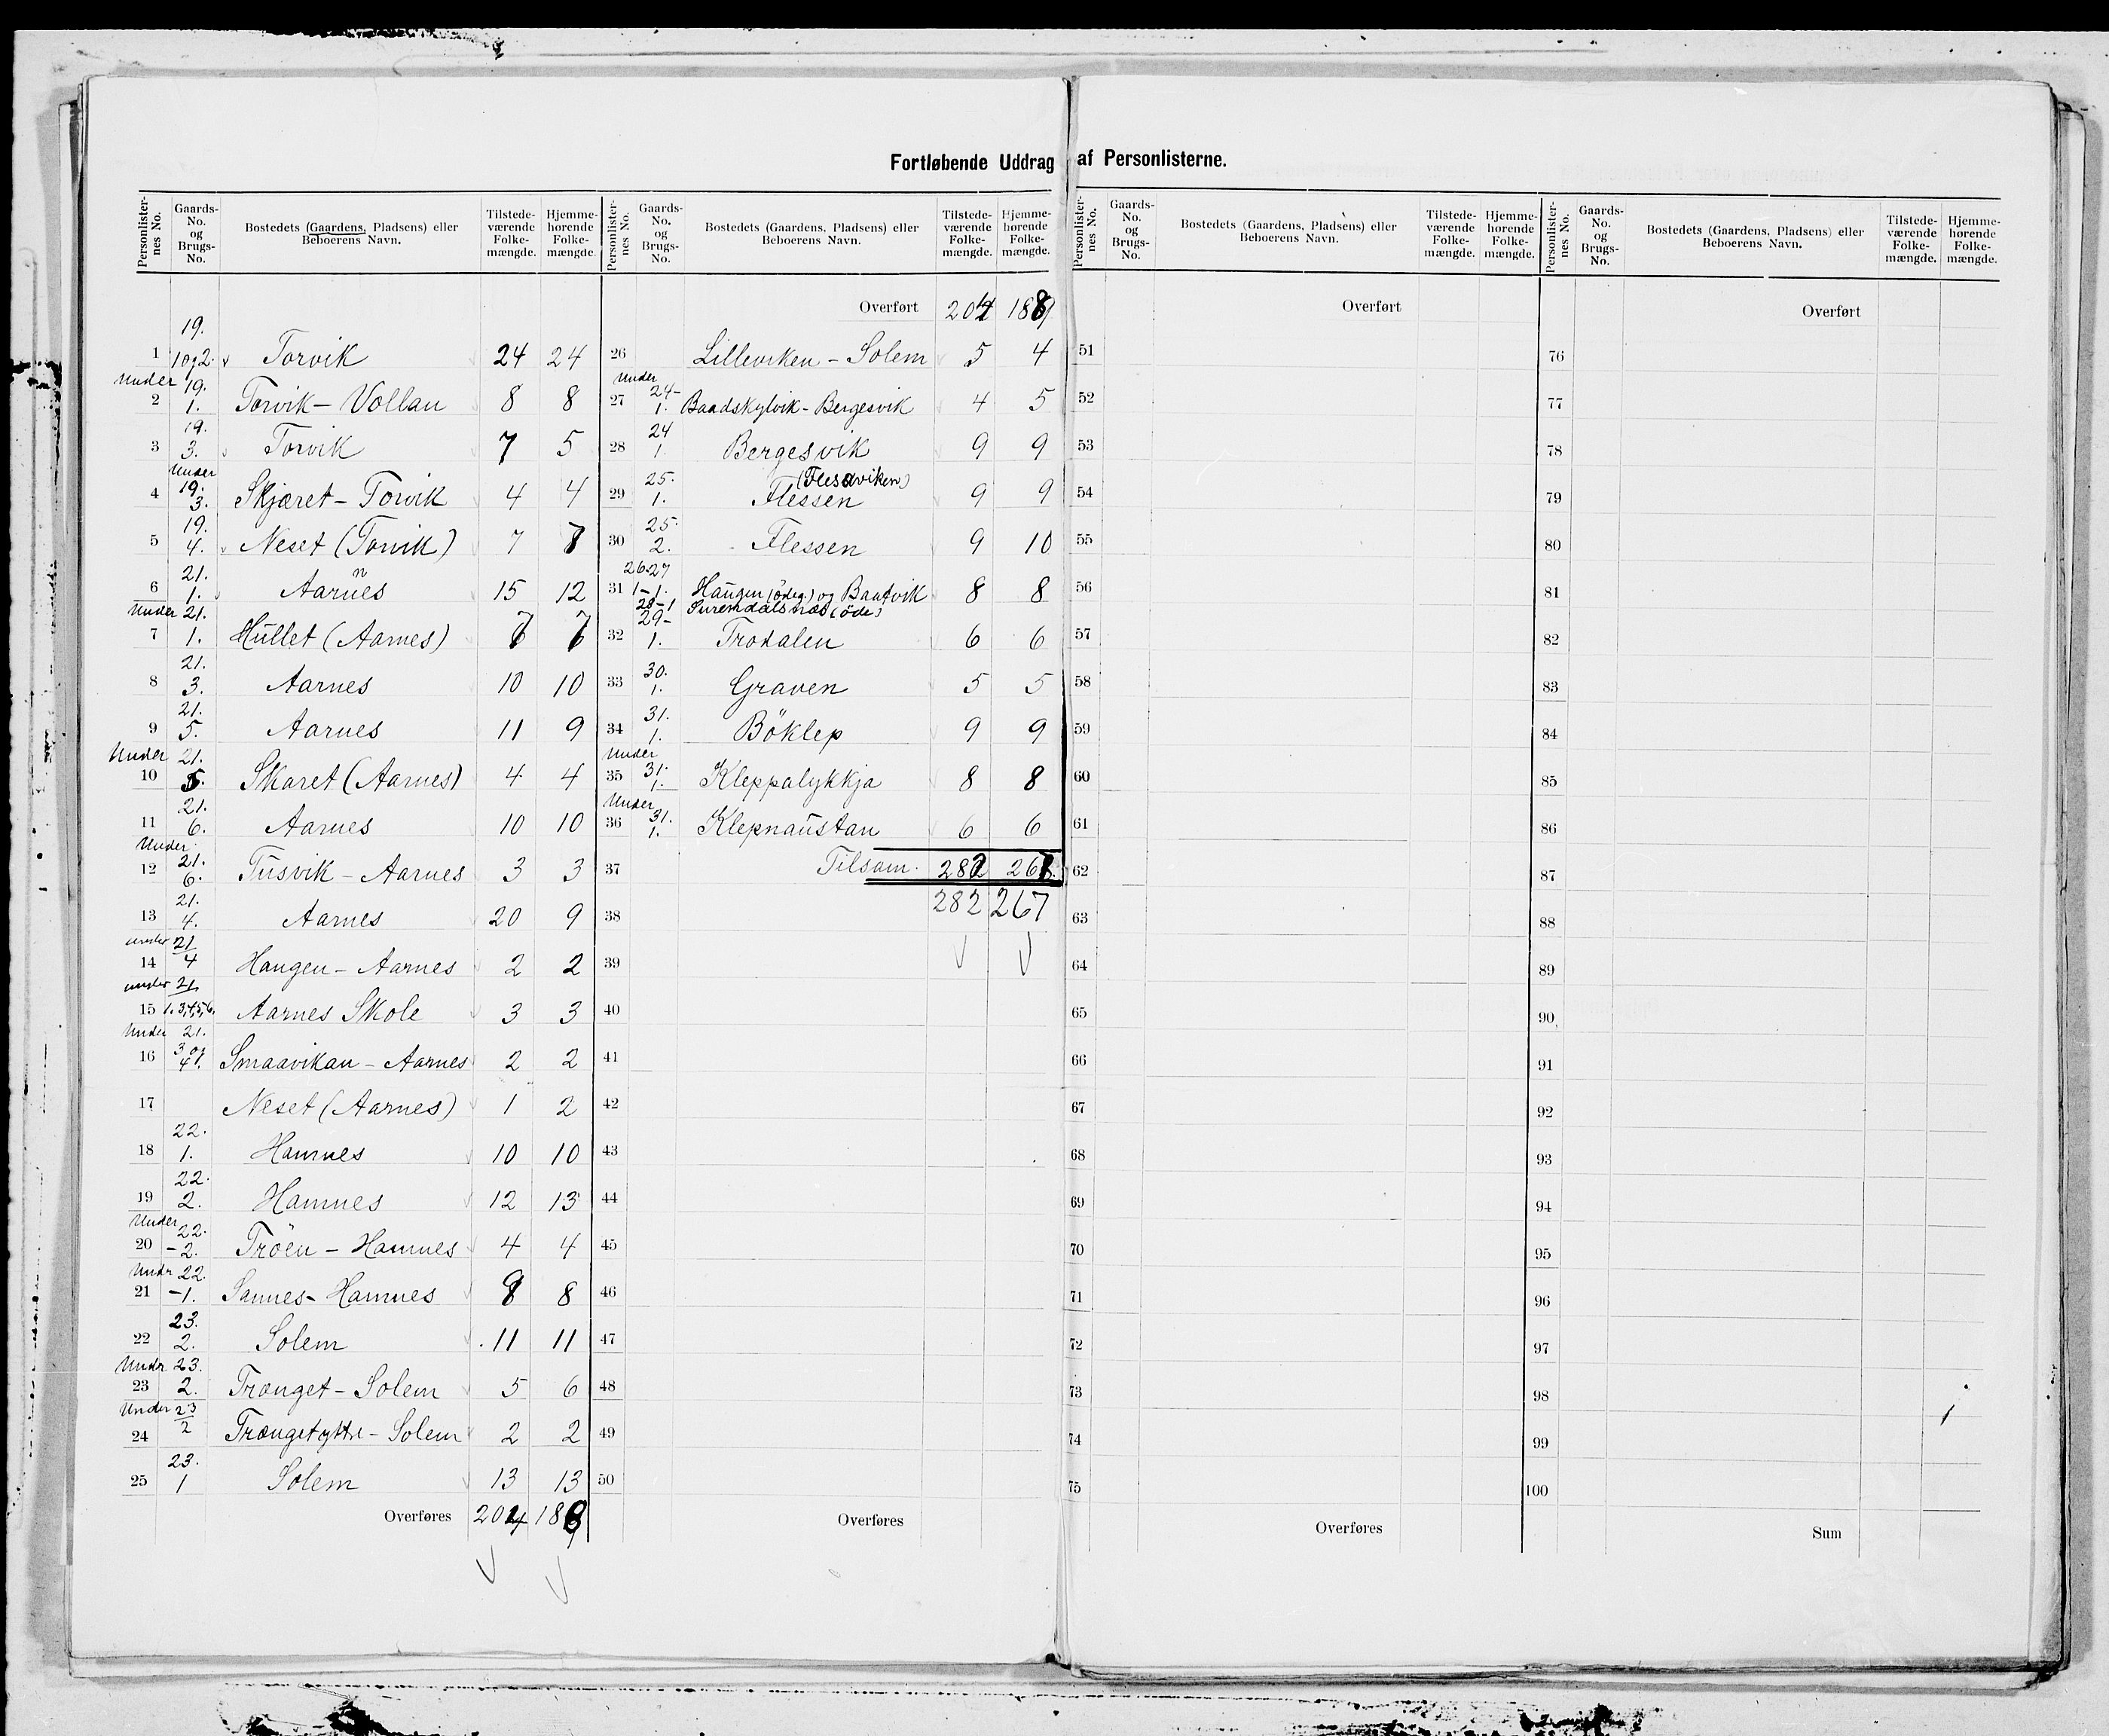 Fortløbende Uddrag af Personlisterne.
Personlisternes No. Gaards-No. og Brugs-No. Bostedets (Gaardens, Pladsens) eller Beboerens Navn. Tilstedeværende Folkemængde. Hjemmehørende Folkemængde.
19.
1 1og2. Torvik 24 24
Under 19.
2 1. Torvik - Vollan 8 8
19.
3 3. Torvik 7 5
Under 19.
4 3. Skjæret - Torvik 4 4
19.
5 4. Neset (Torvik) 7
21.
6 1. Aarnes 15 12
Under 21.
7 1. Hullet (Aarnes) 7 7
21.
8 3. Aarnes 10 10
21.
9 5. Aarnes 11 9
Under 21.
10 5. Skaret (Aarnes) 4 4
21.
11 6. Aarnes 10 10
Under 21.
12 6. Tusvik - Aarnes 3 3
21.
13 4. Aarnes 20 9
under 21
14 4 Haugen - Aarnes 2 2
under 21
15 1.3,4,5,6. Aarnes Skole 3 3
Under 21.
16 3 og 4. Smaavikan - Aarnes 2 2
17 Neset (Aarnes) 1 2
22.
18 1. Hamnes 10 10
22.
19 2. Hamnes 12 13
Under 22.
20 -2. Tröen - Hamnes 4 4
Undr 22.
21 -1. Sannes - Hamnes 8
23.
22 2. Solem 11 11
Undr 23.
23 2. Trænget - Solem 5 6
Under 23
24 2 Trængetyttre - Solem 2 2
23.
25 1 Solem 13 13
Overføres 204 189
Personlisternes No. Gaards-No. og Brugs-No. Bostedets (Gaardens, Pladsens) eller Beboerens Navn. Tilstedeværende Folkemængde. Hjemmehørende Folkemængde.
Overført 204 189
26 Lilleviken - Solem 5 4
Under 24-
27 1. Baadskylvik - Bergesvik 4 5
24
28 1. Bergesvik 9 9
25. (Flesaviken)
29 1. Flessen 9 9
25.
30 2. Flessen 9 10
26.27
31 1-1. Haugen (ödeg.) og Baatvik 8 8
28-1 Surendalsnæs (öde)
29-
32 1. Trodalen 6 6
30.
33 1. Graven 5 5
31.
34 1. Böklep 9 9
Under 31.
35 1. Kleppalykkja 8 8
Under 31.
36 1. Klepnaustan 6 6
37 Tilsam. 282 267
38 282 267
39
40
41
42
43
44
45
46
47
48
49
50
Overføres
Personlisternes No. Gaards-No. og Brugs-No. Bostedets (Gaardens, Pladsens) eller Beboerens Navn. Tilstedeværende Folkemængde. Hjemmehørende Folkemængde.
Overført
51
52
53
54
55
56
57
58
59
60
61
62
63
64
65
66
67
68
69
70
71
72
73
74
75
Overføres
Personlisternes No. Gaards-No. og Brugs-No. Bostedets (Gaardens, Pladsens) eller Beboerens Navn. Tilstedeværende Folkemængde. Hjemmehørende Folkemængde.
Overført
76
77
78
79
80
81
82
83
84
85
86
87
88
89
90
91
92
93
94
95
96
97
98
99
100
Sum